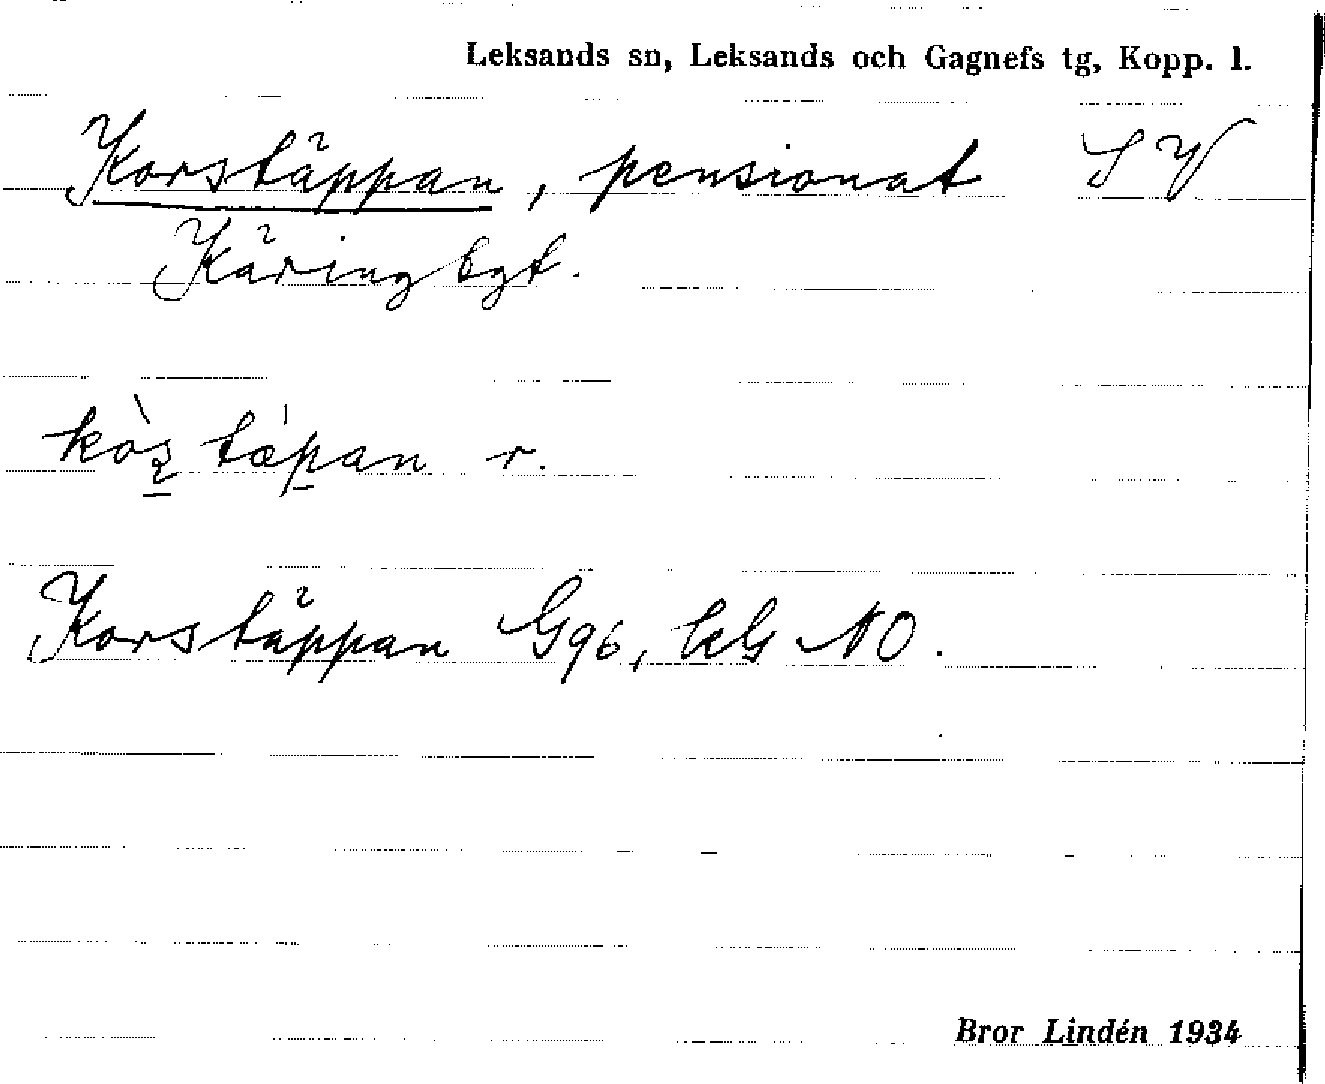 Leksands sn, Leksands och Gagnefs tg, Kopp. l.
Korstäppan, pensionat SV
Käringbgt.
r.
Korstäppan G96, kG NO.
Bror Lindén 1934